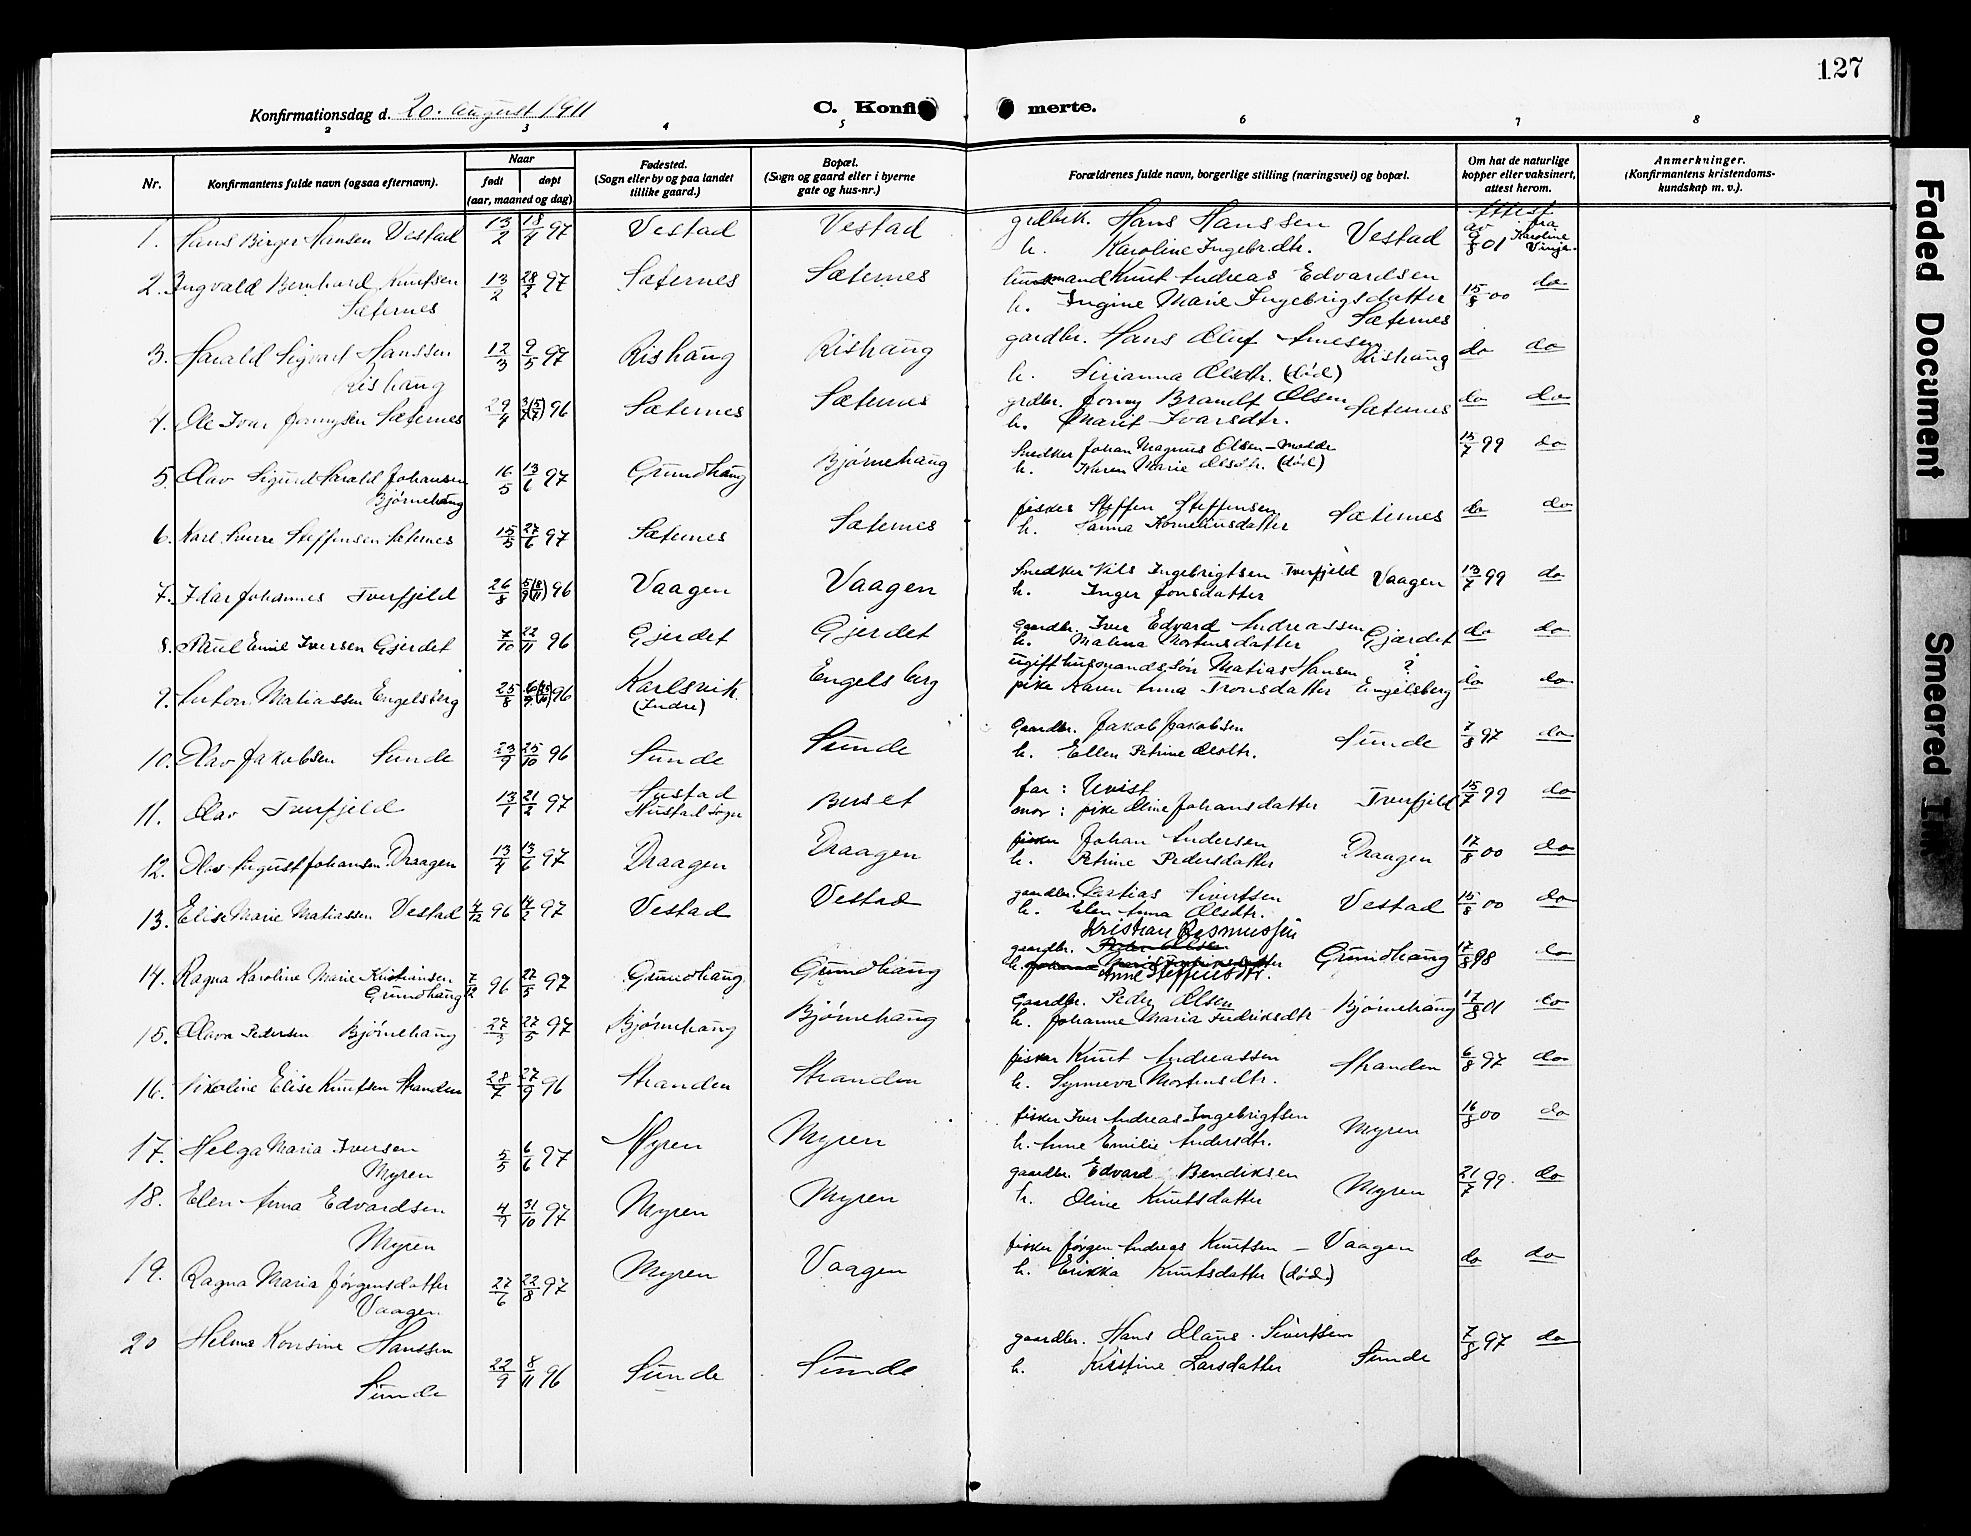 127
Konfirmationsdag d. 20. august 1911
C. Konfi merte.
2 3 4 5 6 7 8
Nr.
Konfirmantens fulde navn (ogsaa efternavn).
Naar
født døpt
(aar, maaned og dag)
Fødested.
(Sogn eller by og paa landet
tillike gaard.)
Bopæl.
(Sogn og gaard eller i byerne
gate og hus-nr.)
Forældrenes fulde navn, borgerlige stilling (næringsvei) og bopæl.
Om hat de naturlige
kopper eller vaksinert,
attest herom.
Anmerkninger.
(Konfirmantens kristendoms-
kundskap m. v.).
1. Hans Birger Hansen Vestad 13/2 18/4 97 Vestad Vestad grdbr. Hans Hanssen Vestad Attest av 9/8 01 fra Karoline
h. Karoline Ingebr.dtr.
2. Ingvald Bernhard Knutsen 13/2 28/2 97 Sæternes Sæternes husmand Knut Andreas Edvardsen 15/8 00 do
Sæternes h. Ingine Marie Ingebrigsdatter
Sæternes
3. Harald Sigvart Hanssen 12/3 9/5 97 Rishaug Rishaug gardbr. Hans Oluf Rishaug do do
Rishaug h. Olsdtr. (død)
4. Ole Ivar Jonnysen Sæternes 29/4 96 Sæternes Sæternes grdbr. Jonny Brandt Olsen Sæternes do do
h. Marit Ivarsdtr.
5. Olav Sigurd Harald Johansen 16/5 13/6 97 Grundhaug Bjørnehaug Snedker Johan Magnus Olsen – Molde 15/7 99 do
Bjørnehaug h. Karen Marie Olsdtr. (død)
6. Karl Sverre Steffensen Sæternes 15/5 27/6 97 Sæternes Sæternes fisker Steffen Steffensen Sæternes do do
h. Hanna Kornelinsdatter
7. Johannes Tverfjeld 26/8 96 Vaagen Vaagen Snedker Nils Ingebrigtsen Tverfjeld Vaagen 13/7 99 do
h. Inger Jonsdatter
8. Paul Emil Iversen Gjerdet 7/10 22/11 96 Gjerdet Gjerdet Gaardbr. Iver Edvard Andreassen Gjærdet do do
h. Malena Mortensdatter
9. Anton Matiassen Engelsberg 25/8 96 Karlsvik Engelsberg ugift husmandssøn Matias Hansen ? do do
(Indre) pike Karen Anna Tronsdatter Engelsberg
10. Olav Jakobsen Sunde 23/9 25/10 96 Sunde Sunde Gaardbr. Jakob Jakobsen Sunde 7/8 97 do
h. Ellen Petrine Olsdtr.
11. Olav Tverfjeld 13/1 21/2 97 Hustad Buset far: Uvist
Hustad Sogn mor: pike Oline Johansdatter Tverfjeld 15/7 99 do
12. Olav August Johansen Draagen 13/4 13/6 97 Draagen Draagen fisker Johan Andersen Draagen 17/8 00 do
h. Petrine Pedersdatter
13. Elise Marie Matiassen Vestad 4/12 96 14/2 97 Vestad Vestad gaardbr. Matias Sivertsen Vestad 15/8 00 do
h. Elen Anna Olsdtr.
Kristian Rasmussen
14. Ragna Karoline Marie Kristiansen 7/12 96 27/5 97 Grundhaug Grundhaug gaardbr. Peder Olsen Grundhaug 17/8 98 do
Grundhaug h. Anne Steffensdtr.
15. Olava Pedersen Bjørnehaug 27/3 27/5 97 Bjørnehaug Bjørnehaug Gaardbr. Peder Olsen Bjørnehaug 17/8 01 do
h. Johanne Maria Fredriksdtr
16. Nikoline Elise Knutsen Stranden 28/7 27/9 96 Stranden Stranden fisker Knut Andreassen Stranden 6/8 97 do
h. Synneva Mortensdtr.
17. Helga Maria Iversen 5/5 6/6 97 Myren Myren fisker Iver Andreas Ingebrigtsen Myren 16/8 00 do
Myren h. Anne Emilie Andersdtr.
18. Elen Anna Edvardsen 4/9 31/10 97 Myren Myren gaardbr. Edvard Bendiksen Myren 21/7 99. do
Myren h. Oline Knutsdatter
19. Ragna Maria Jörgensdatter 27/6 22/8 97 Myren Vaagen fisker Jörgen Andreas Knutsen – Vaagen do do
Vaagen h. Erikka Knutsdatter (død)
20 Helma Konsine Hanssen 22/9 8/11 96 Sunde Sunde gaardbr. Hans Olaus Sivertsen Sunde 7/8 97 do
Sunde h. Kristine Larsdatter
Faded Document
Smeared Ink